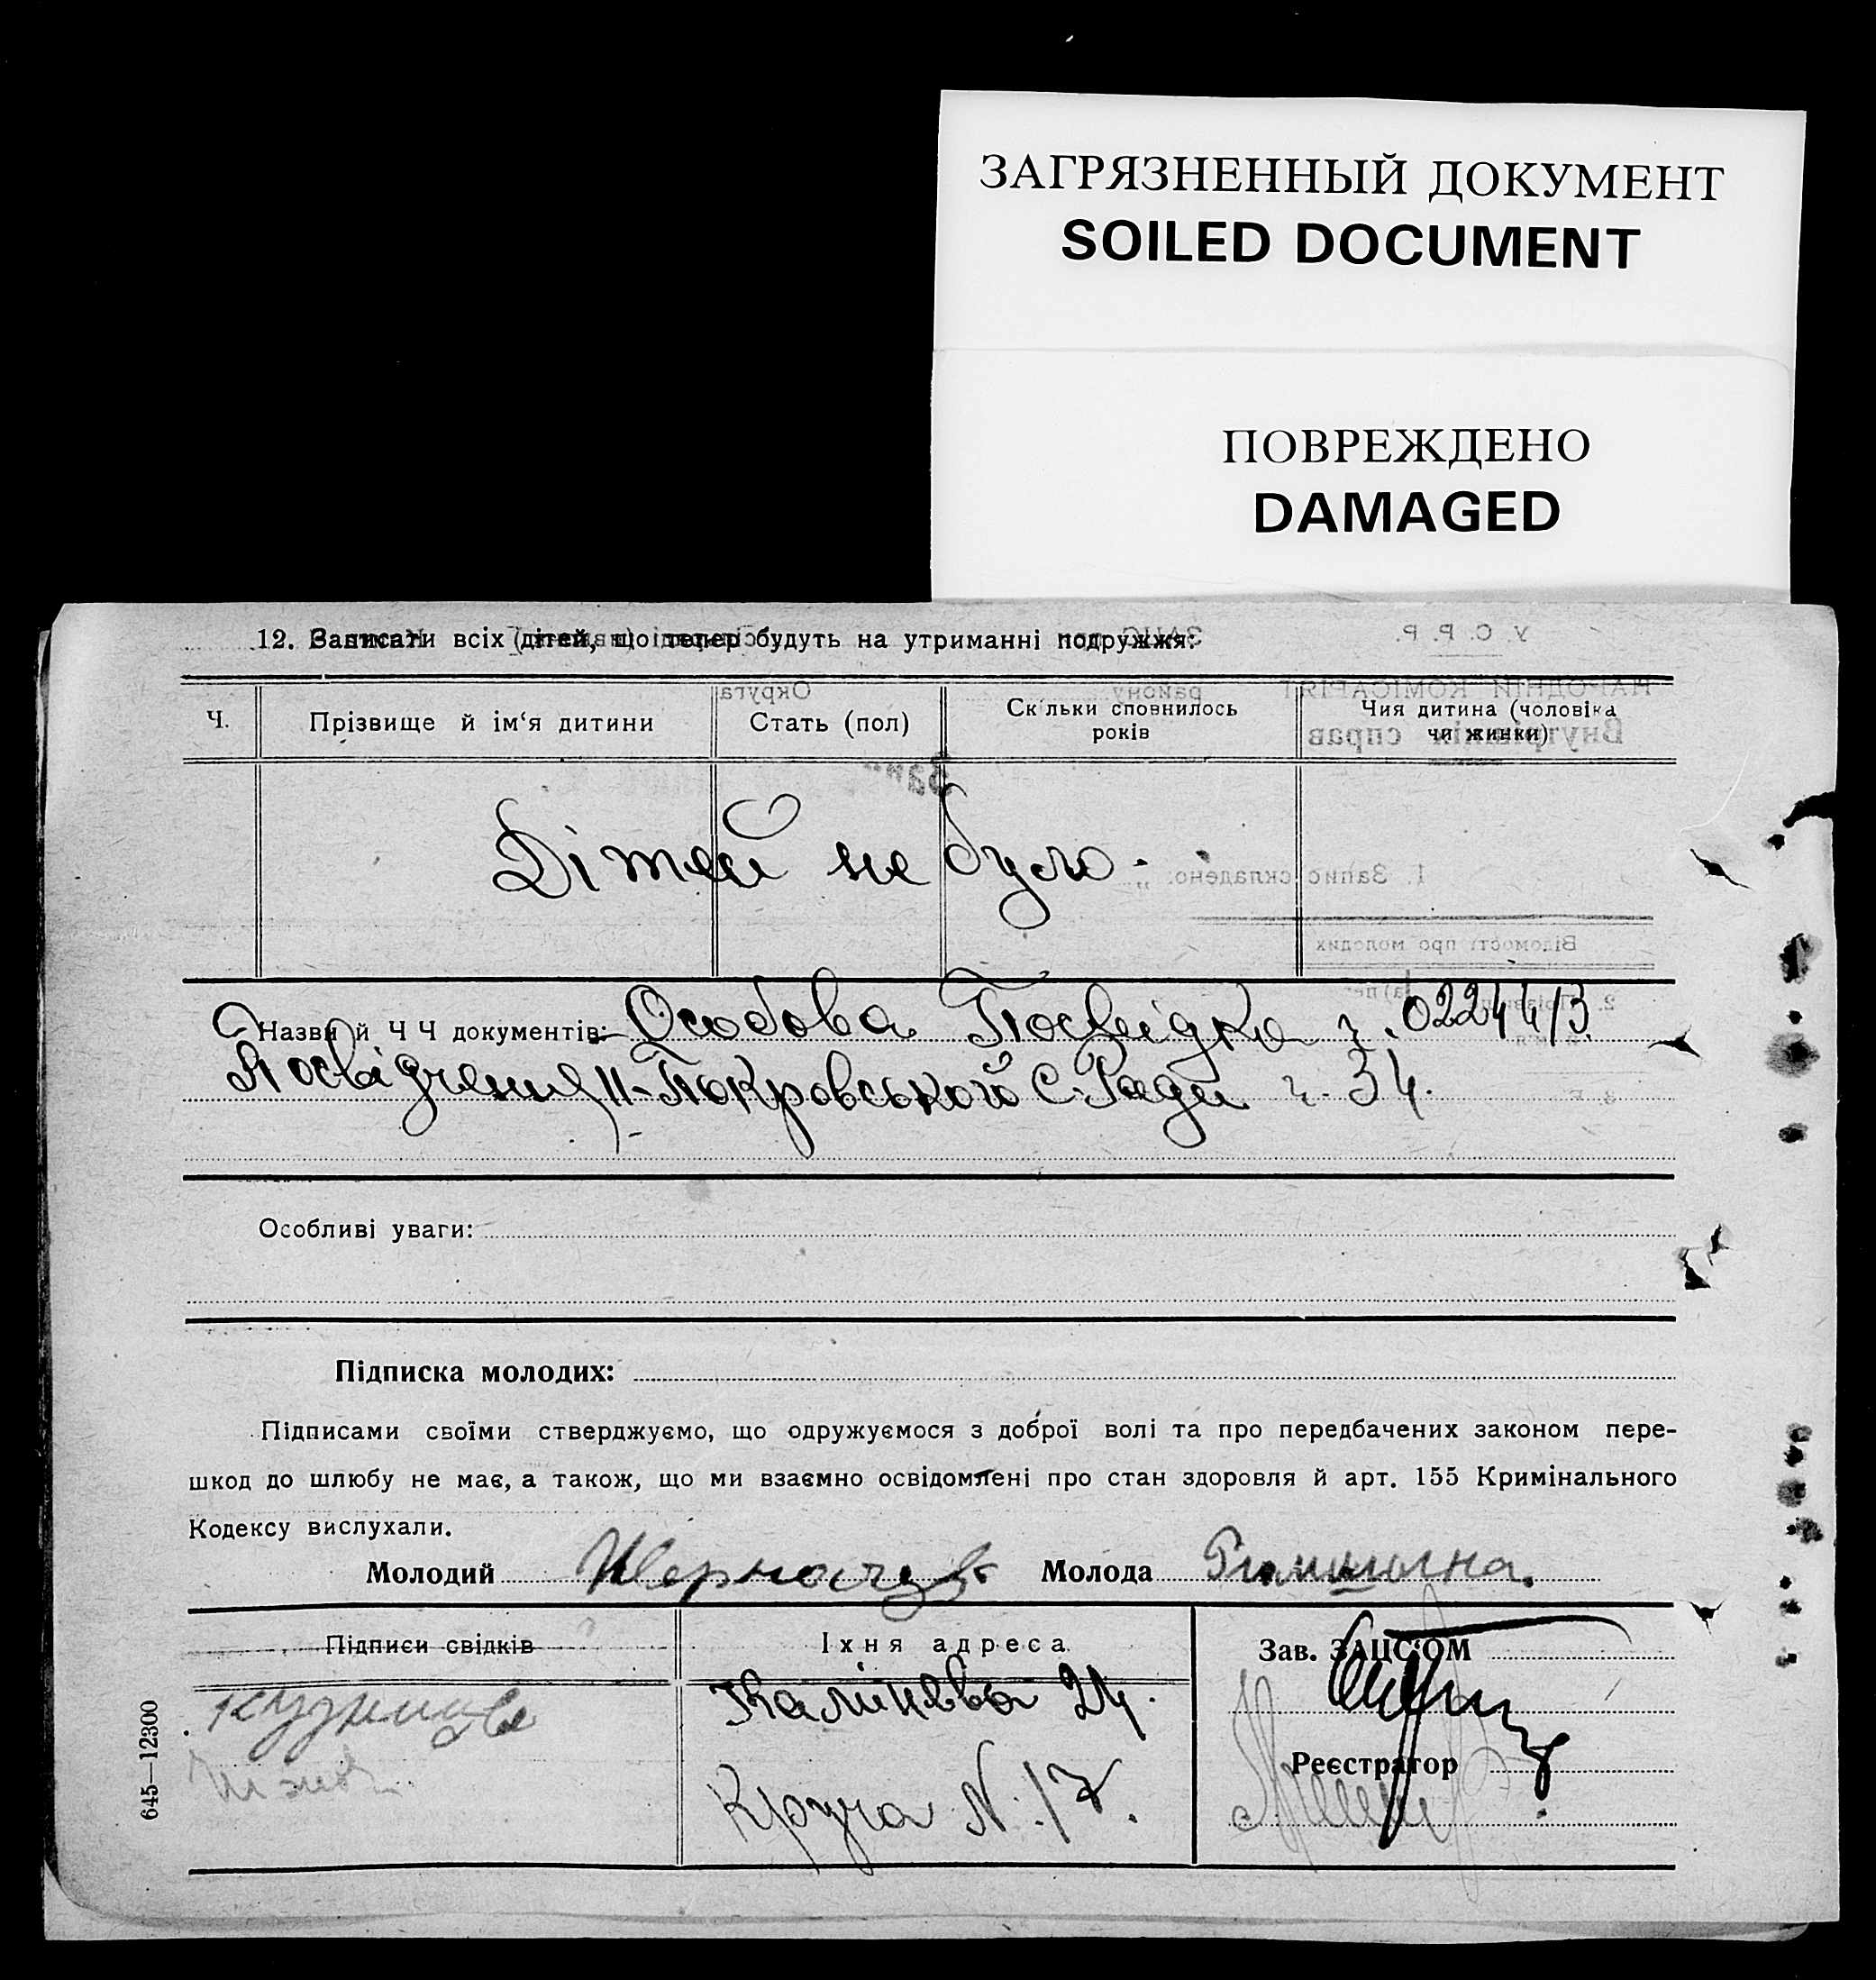 ЗАГРЯЗНЕННЫЙ ДОКУМЕНТ
SOILED DOCUMENT
ПОВРЕЖДЕНО
DAMAGED
12. Записати всіх дітей, що тепер будуть на утриманні подружжя:
Ч. Прізвище й ім‘я дитини Стать (пол) Скільки сповнилось років Чия дитина (чоловіка чи жинки)
Дітей не було.
Назви й Ч Ч документів: Особова Посвідка ч. 02244/3.
Посвідчення Н-Покровського С. Ради ч. 34.
Особливі уваги:
Підписка молодих:
Підписами своїми стверджуємо, що одружуємося з доброї волі та про передбачених законом пере-
шкод до шлюбу не має, а також, що ми взаємно освідомлені про стан здоровля й арт. 155 Кримінального
Кодексу вислухали.
Молодий Молода
Підписи свідків Їхня адреса Зав. ЗАЦС‘ОМ
Калінєва 24.
Реєстратор
Круча N. 17.
645—12300